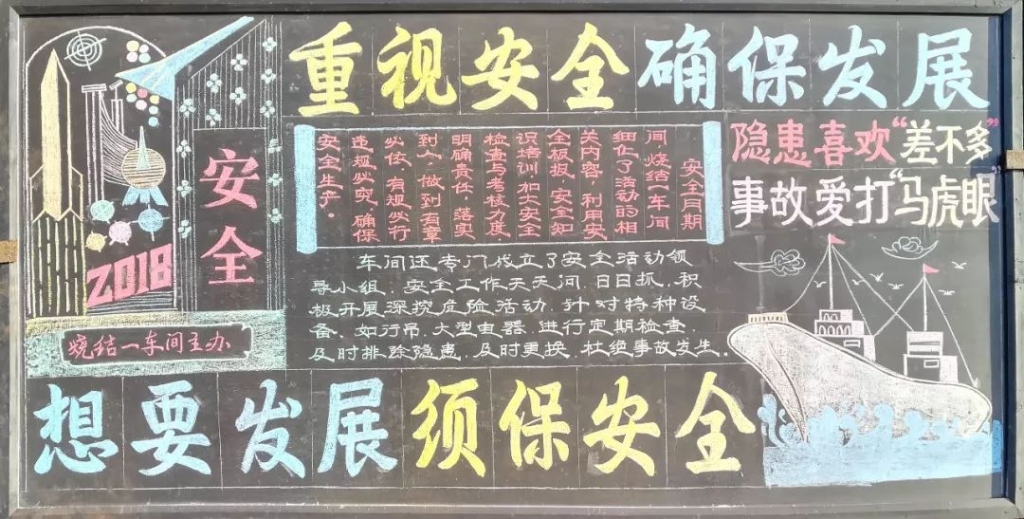 重视安全确保发展
安全
2018
烧结一车间主办
安全月期
间,烧结一车间
细化了活动的相
关内容,利用安
全板报、安全知
识培训,加大安全
检查与考核力度,
明确责任,落实
到人,做到有章
必依,有规必行
违规必究,确保
安全生产。
隐患喜欢“差不多”
事故爱打“马虎眼”
车间还专门成立了安全活动领
导小组,安全工作天天问,日日抓,积
极开展深挖危险活动,针对特种设
备,如行吊、大型电器,进行定期检查,
及时排除隐患,及时更换,杜绝事故发生。
想要发展须保安全